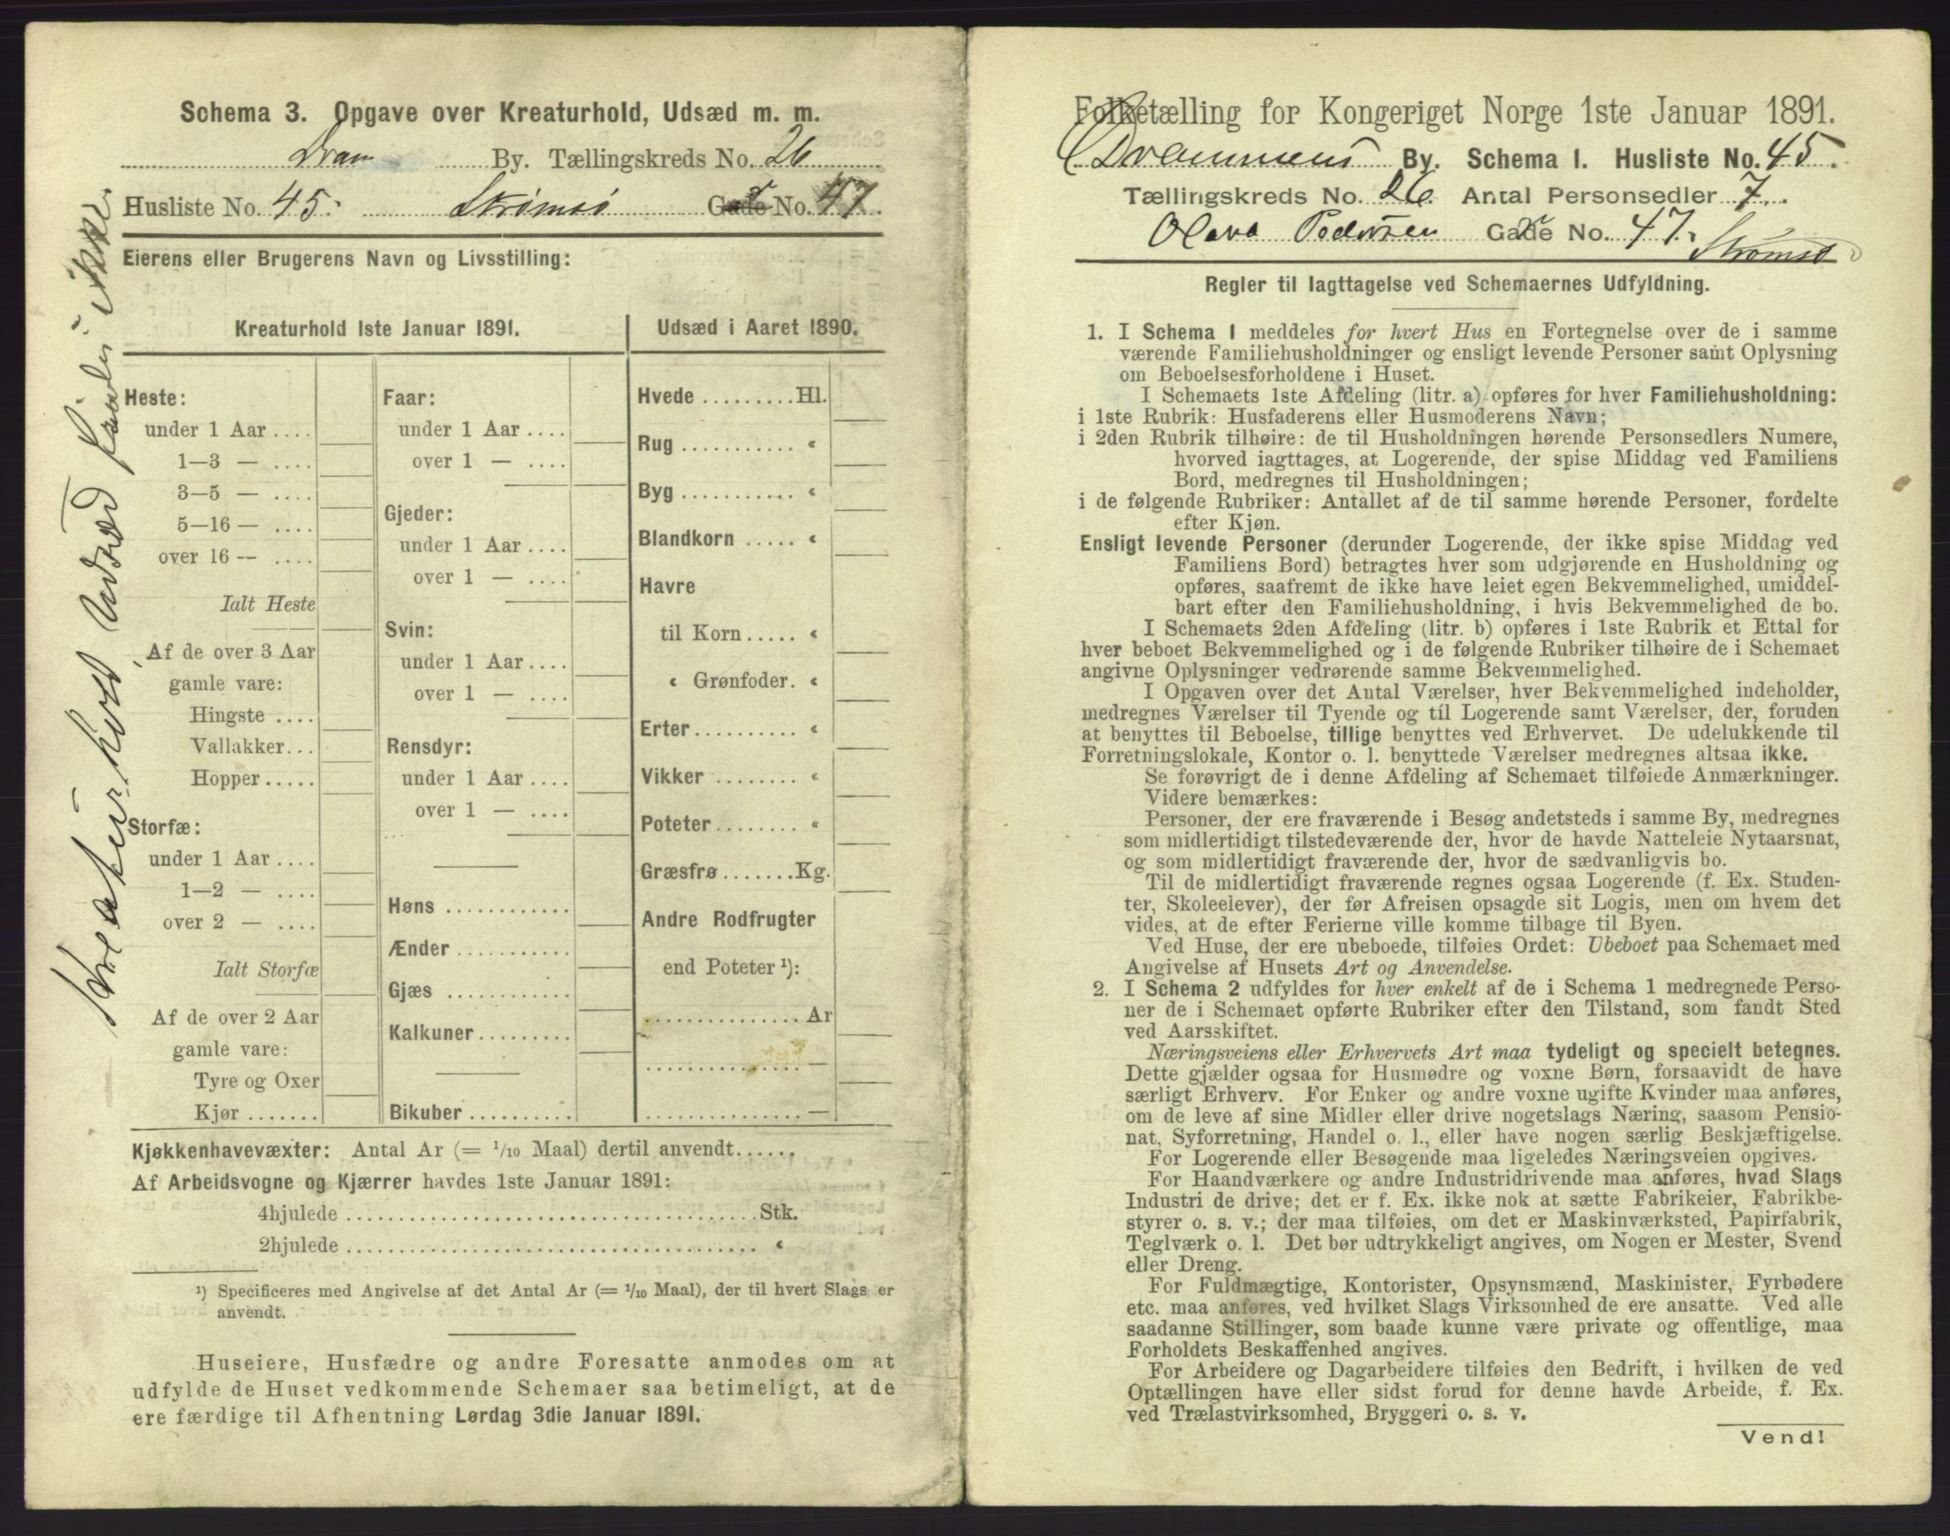 Schema 3. Opgave over Kreaturhold, Udsæd m. m.
Dram By. Tællingskreds No. 26
Husliste No. 45. Strømsø Gade No. 47.
Eierens eller Brugerens Navn og Livsstilling:
Kreaturhold 1ste Januar 1891.
Heste:
under 1 Aar ....
1—3 — ....
3—5 — ....
5—16 — ....
over 16 — ....
Ialt Heste
Af de over 3 Aar
gamle vare:
Hingste ....
Vallakker...
Hopper .....
Storfæ:
under 1 Aar ....
1—2 — ....
over 2 — ....
Ialt Storfæ
Af de over 2 Aar
gamle vare:
Tyre og Oxer
Kjør .......
Faar:
under 1 Aar ....
over 1 — ....
Gjeder:
under 1 Aar ....
over 1 — ....
Svin:
under 1 Aar ....
over 1 — ....
Rensdyr:
under 1 Aar ....
over 1 — ....
Høns ............
Ænder ..........
Gjæs ............
Kalkuner.........
Bikuber ..........
Udsæd i Aaret 1890.
Hvede .........Hl.
Rug ........... «
Byg ........... «
Blandkorn ..... «
Havre
til Korn ..... «
« Grønfoder. «
Erter.......... «
Vikker ........ «
Poteter........ «
Græsfrø .......Kg.
Andre Rodfrugter
end Poteter ¹):
............... Ar
............... —
............... —
Kjøkkenhavevæxter: Antal Ar (= 1/10 Maal) dertil anvendt......
Af Arbeidsvogne og Kjærrer havdes 1ste Januar 1891:
4hjulede ........................................Stk.
2hjulede ........................................ «
¹) Specificeres med Angivelse af det Antal Ar (= 1/10 Maal), der til hvert Slags er
anvendt.
Huseiere, Husfædre og andre Foresatte anmodes om at
udfylde de Huset vedkommende Schemaer saa betimeligt, at de
ere færdige til Afhentning Lørdag 3die Januar 1891.
Kreaturhold, Udsæd haves ikke.
Folketælling for Kongeriget Norge 1ste Januar 1891.
Drammens By. Schema I. Husliste No. 45.
Tællingskreds No. 26. Antal Personsedler 7.
Olava Pedersen Gade No. 47. Strømsø
Regler til Iagttagelse ved Schemaernes Udfyldning.
1. I Schema 1 meddeles for hvert Hus en Fortegnelse over de i samme
værende Familiehusholdninger og ensligt levende Personer samt Oplysning
om Beboelsesforholdene i Huset.
I Schemaets 1ste Afdeling (litr. a) opføres for hver Familiehusholdning:
i 1ste Rubrik: Husfaderens eller Husmoderens Navn;
i 2den Rubrik tilhøire: de til Husholdningen hørende Personsedlers Numere,
hvorved iagttages, at Logerende, der spise Middag ved Familiens
Bord, medregnes til Husholdningen;
i de følgende Rubriker: Antallet af de til samme hørende Personer, fordelte
efter Kjøn.
Ensligt levende Personer (derunder Logerende, der ikke spise Middag ved
Familiens Bord) betragtes hver som udgjørende en Husholdning og
opføres, saafremt de ikke have leiet egen Bekvemmelighed, umiddel-
bart efter den Familiehusholdning, i hvis Bekvemmelighed de bo.
I Schemaets 2den Afdeling (litr. b) opføres i 1ste Rubrik et Ettal for
hver beboet Bekvemmelighed og i de følgende Rubriker tilhøire de i Schemaet
angivne Oplysninger vedrørende samme Bekvemmelighed.
I Opgaven over det Antal Værelser, hver Bekvemmelighed indeholder,
medregnes Værelser til Tyende og til Logerende samt Værelser, der, foruden
at benyttes til Beboelse, tillige benyttes ved Erhvervet. De udelukkende til
Forretningslokale, Kontor o. l. benyttede Værelser medregnes altsaa ikke.
Se forøvrigt de i denne Afdeling af Schemaet tilføiede Anmærkninger.
Videre bemærkes:
Personer, der ere fraværende i Besøg andetsteds i samme By, medregnes
som midlertidigt tilstedeværende der, hvor de havde Natteleie Nytaarsnat,
og som midlertidigt fraværende der, hvor de sædvanligvis bo.
Til de midlertidigt fraværende regnes ogsaa Logerende (f. Ex. Studen-
ter, Skoleelever), der før Afreisen opsagde sit Logis, men om hvem det
vides, at de efter Ferierne ville komme tilbage til Byen.
Ved Huse, der ere ubeboede, tilføies Ordet: Ubeboet paa Schemaet med
Angivelse af Husets Art og Anvendelse.
2. I Schema 2 udfyldes for hver enkelt af de i Schema 1 medregnede Perso-
ner de i Schemaet opførte Rubriker efter den Tilstand, som fandt Sted
ved Aarsskiftet.
Næringsveiens eller Erhvervets Art maa tydeligt og specielt betegnes.
Dette gjælder ogsaa for Husmødre og voxne Børn, forsaavidt de have
særligt Erhverv. For Enker og andre voxne ugifte Kvinder maa anføres,
om de leve af sine Midler eller drive nogetslags Næring, saasom Pensio-
nat, Syforretning, Handel o. l., eller have nogen særlig Beskjæftigelse.
For Logerende eller Besøgende maa ligeledes Næringsveien opgives.
For Haandværkere og andre Industridrivende maa anføres, hvad Slags
Industri de drive; det er f. Ex. ikke nok at sætte Fabrikeier, Fabrikbe-
styrer o. s. v.; der maa tilføies, om det er Maskinværksted, Papirfabrik,
Teglværk o. l. Det bør udtrykkeligt angives, om Nogen er Mester, Svend
eller Dreng.
For Fuldmægtige, Kontorister, Opsynsmænd, Maskinister, Fyrbødere
etc. maa anføres, ved hvilket Slags Virksomhed de ere ansatte. Ved alle
saadanne Stillinger, som baade kunne være private og offentlige, maa
Forholdets Beskaffenhed angives.
For Arbeidere og Dagarbeidere tilføies den Bedrift, i hvilken de ved
Optællingen have eller sidst forud for denne havde Arbeide, f. Ex.
ved Trælastvirksomhed, Bryggeri o. s. v.
Vend!